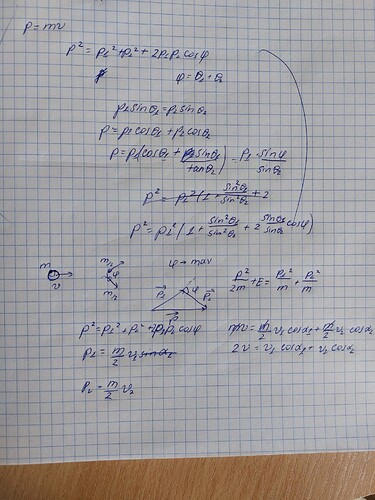 p = mv
p² = p₁² + p₂² + 2p₁p₂cosφ
φ = θ₁ + θ₂
p₁sinθ₁ = p₂sinθ₂
p = p₁cosθ₁ + p₂cosθ₂
p = p₁(cosθ₁ + sinθ₁/tanθ₂) = p₁ · sinφ/sinθ₂
p² = p₁²(1 + sin²θ₁/sin²θ₂ + 2
p² = p₁²(1 + sin²θ₁/sin²θ₂ + 2 sinθ₁/sinθ₂ cosφ)
m
v
m/2
φ
m/2
φ → max
p₁
φ
p₂
p
p²/2m + E = p₁²/m + p₂²/m
p² = p₁² + p₂² + 2p₁p₂cosφ
p₁ = m/2 v₁
p₂ = m/2 v₂
mv = m/2 v₁ cosα₁ + m/2 v₂ cosα₂
2v = v₁ cosα₁ + v₂ cosα₂